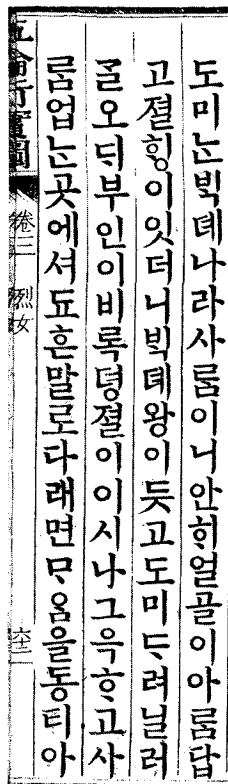 도미ᄂᆞᆫᄇᆡᆨ뎨나라사ᄅᆞᆷ이니안ᄒᆡ얼골이아ᄅᆞᆷ답
고졀ᄒᆡᆼ이잇더니ᄇᆡᆨ뎨왕이듯고도미ᄃᆞ려닐러
ᄀᆞᆯ오ᄃᆡ부인이비록뎡졀이이시나그윽ᄒᆞ고사
ᄅᆞᆷ업ᄂᆞᆫ곳에셔됴흔말로다래면ᄆᆞᄋᆞᆷ을동티아
五倫行實圖 卷二 烈女 六十二